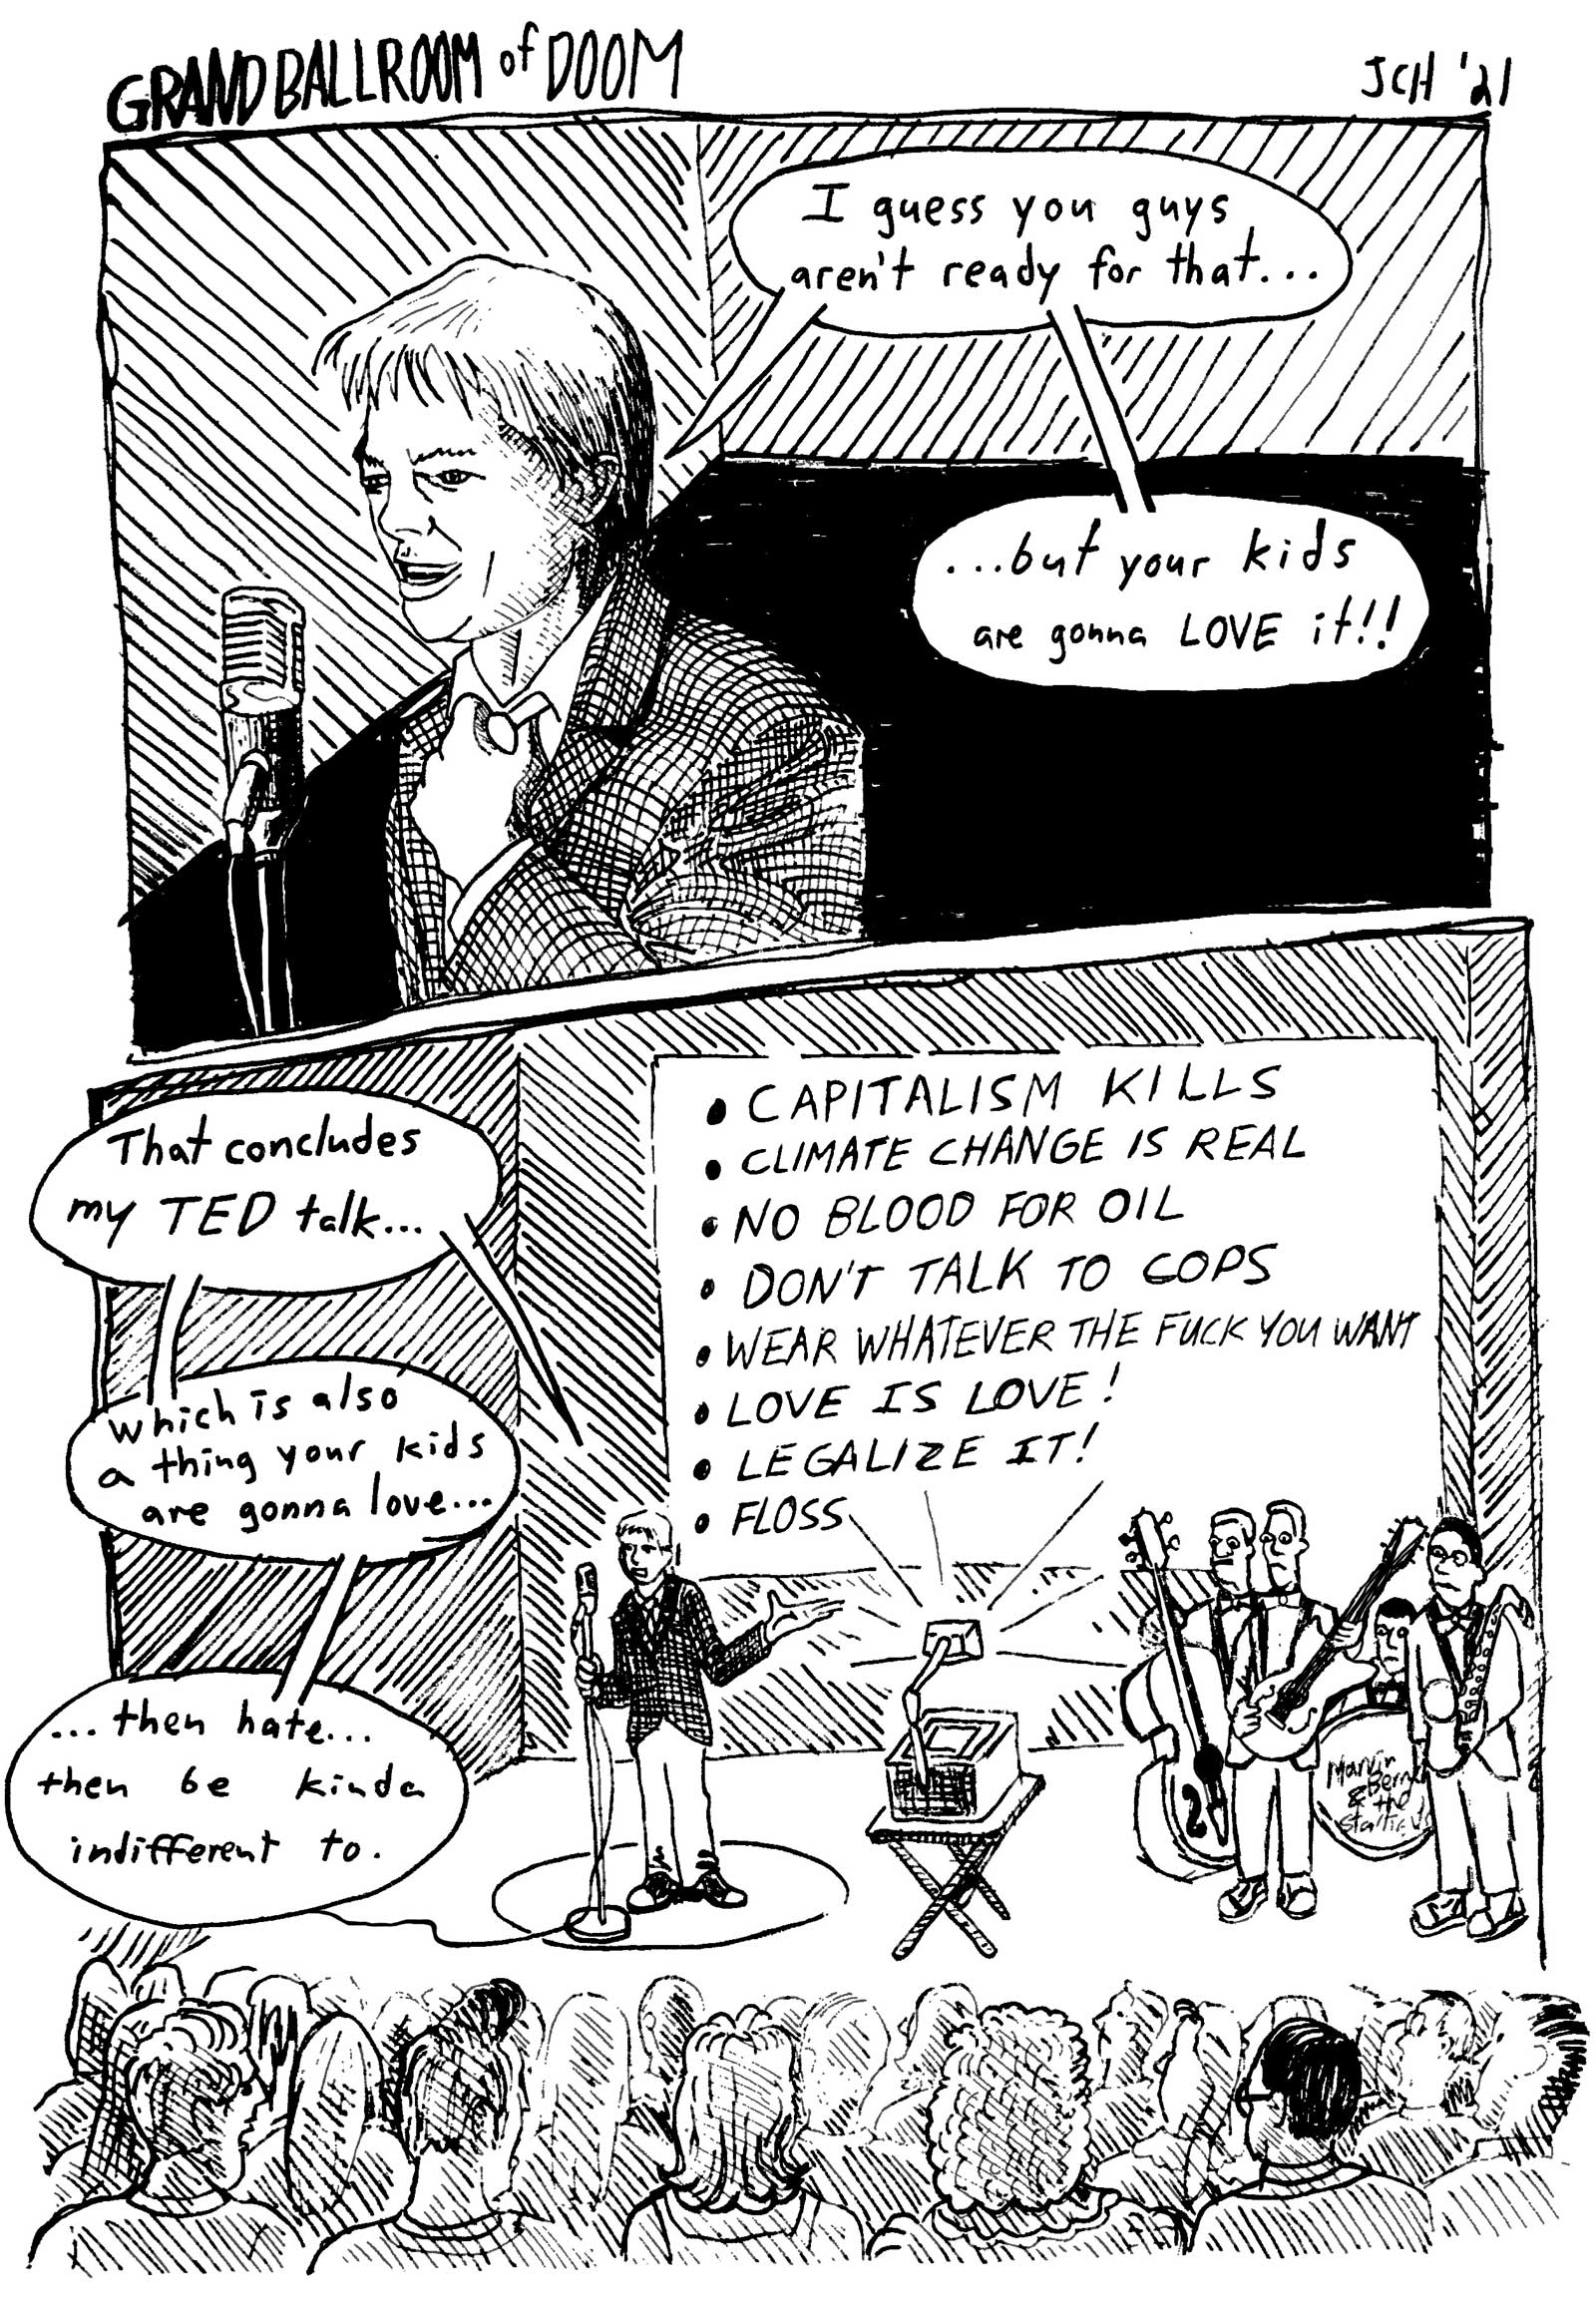 GRAND BALLROOM of DOOM
JCH '21
I guess you guys
aren't ready for that...
...but your kids
are gonna LOVE it!!
That concludes
my TED talk...
which is also
a thing your kids
are gonna love...
...then hate...
then be kinda
indifferent to.
• CAPITALISM KILLS
• CLIMATE CHANGE IS REAL
• NO BLOOD FOR OIL
• DON'T TALK TO COPS
• WEAR WHATEVER THE FUCK YOU WANT
• LOVE IS LOVE!
• LEGALIZE IT!
• FLOSS
2
Marvin
&
the